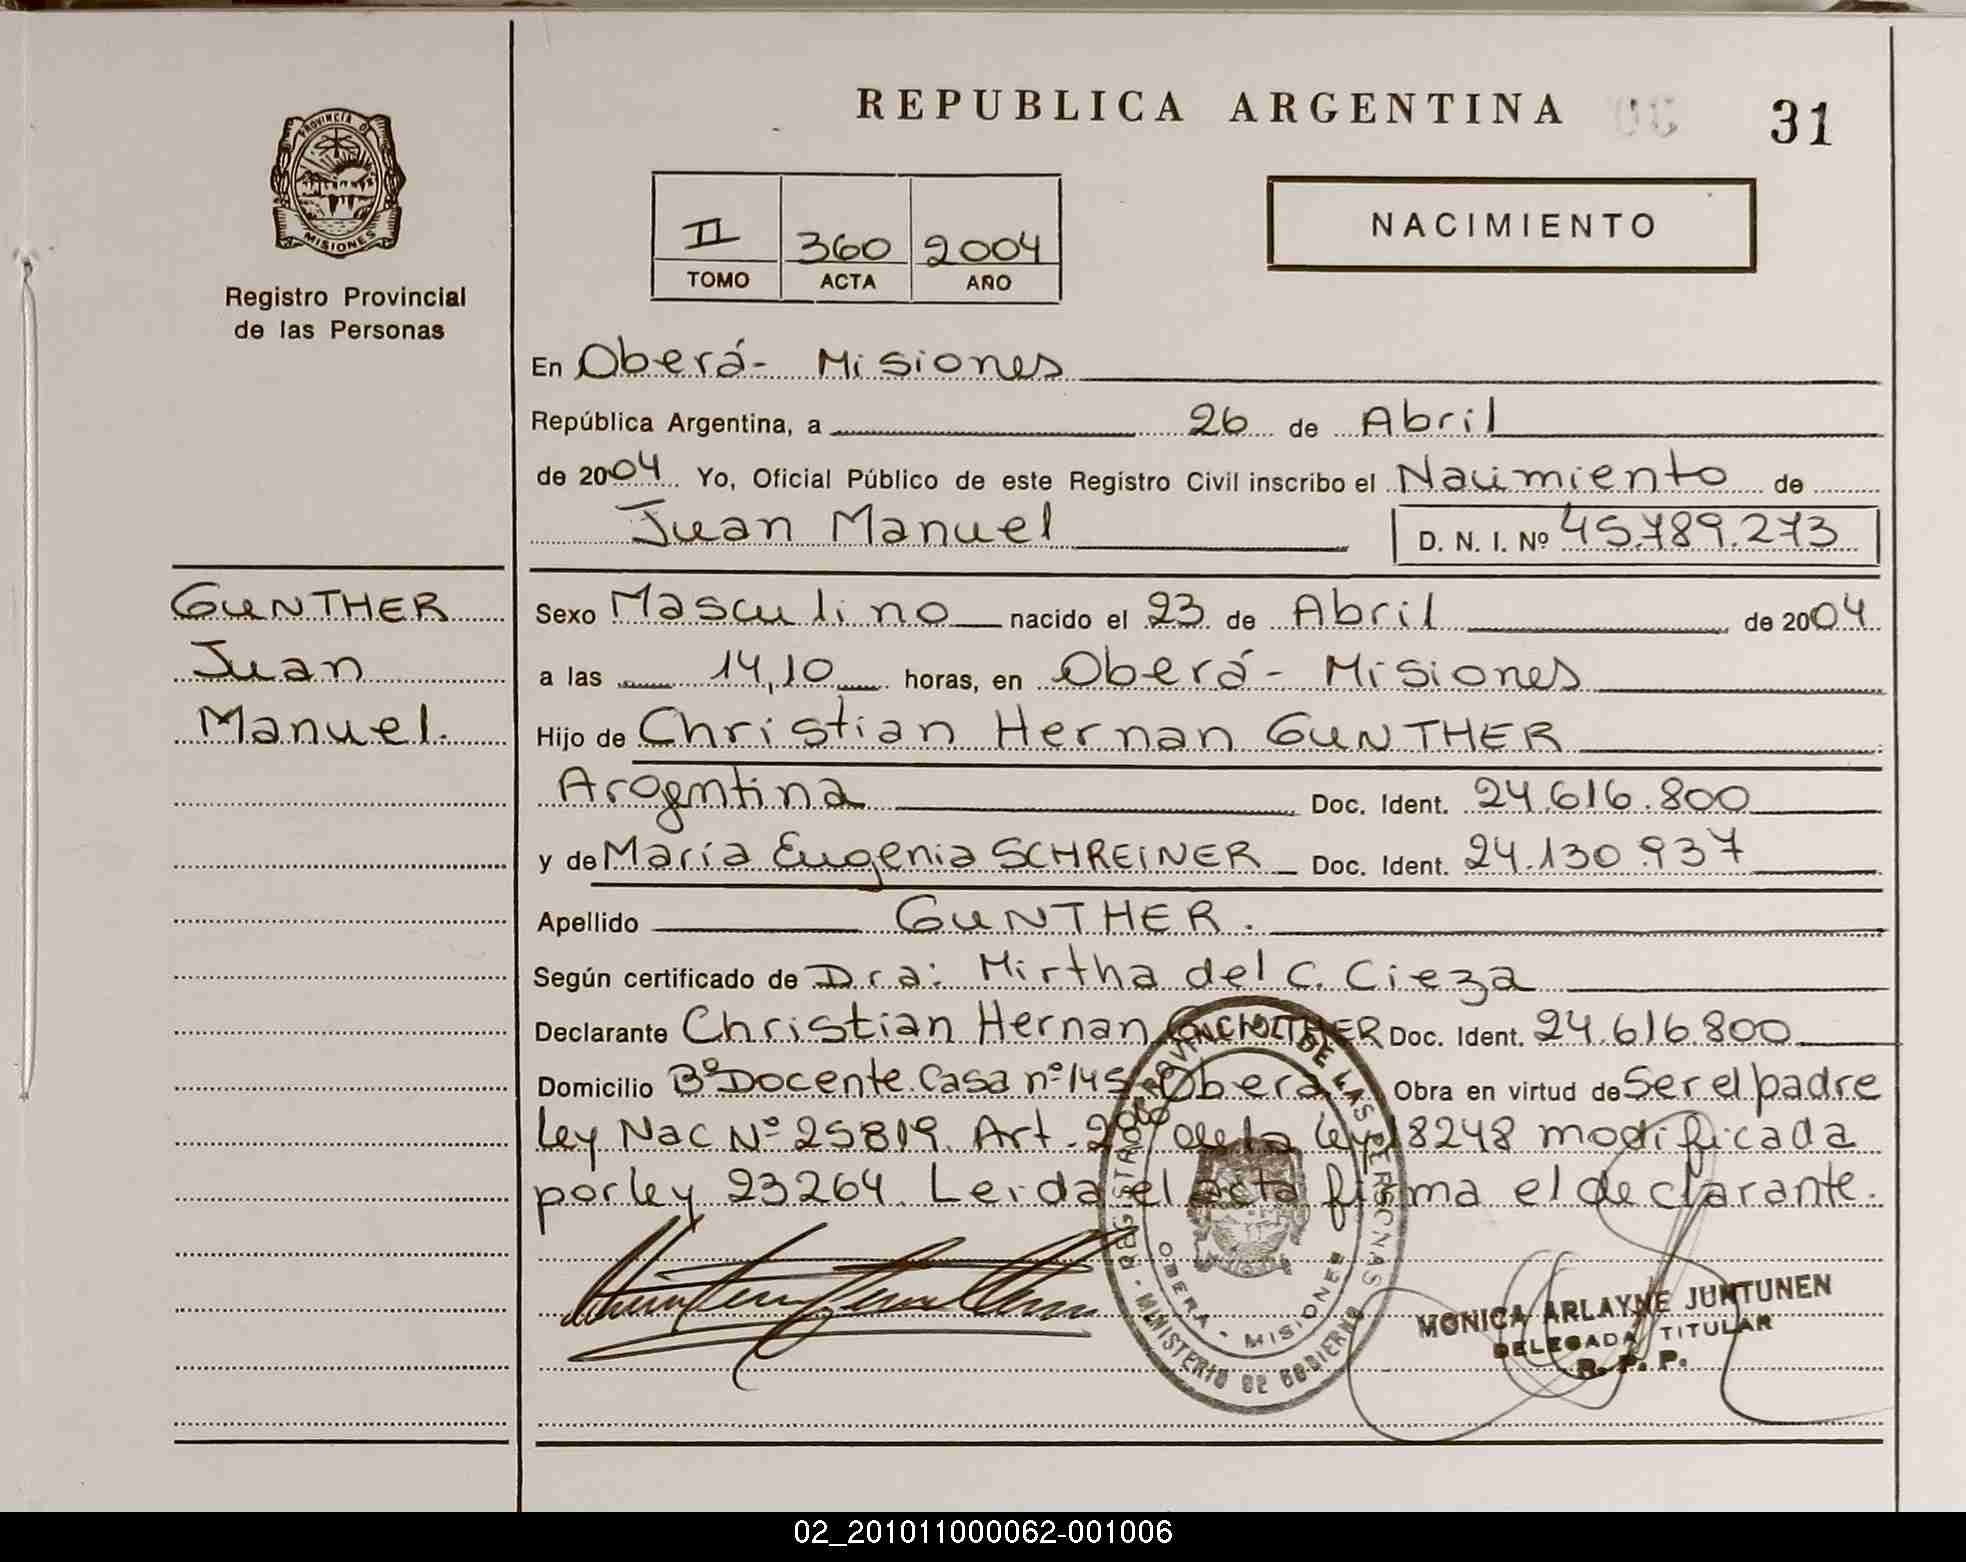 REPUBLICA ARGENTINA
31
PROVINCIA DE MISIONES
Registro Provincial
de las Personas
II 360 2004
TOMO ACTA AÑO
NACIMIENTO
En Oberá- Misiones
República Argentina, a 26 de Abril
de 2004 Yo, Oficial Público de este Registro Civil inscribo el Nacimiento de
Juan Manuel D. N. I. Nº 45.789.273
GUNTHER
Juan
Manuel.
Sexo Masculino nacido el 23 de Abril de 2004
a las 14,10 horas, en Oberá- Misiones
Hijo de Christian Hernan GUNTHER
Argentina Doc. Ident. 24.616.800
y de María Eugenia SCHREINER Doc. Ident. 24.130.937
Apellido GUNTHER.
Según certificado de Dra: Mirtha del C. Cieza
Declarante Christian Hernan GUNTHER Doc. Ident. 24.616.800
Domicilio Bº Docente Casa nº 145 Oberá Obra en virtud de Ser el padre
Ley Nac Nº 25819. Art. de la Ley 18248 modificada
por ley 23264. Leida el acta firma el declarante.
REGISTRO PROVINCIAL DE LAS PERSONAS
OBERA - MISIONES
MINISTERIO DE GOBIERNO
MONICA ARLAYNE JUNTUNEN
DELEGADA TITULAR
R. P. P.
02_201011000062-001006